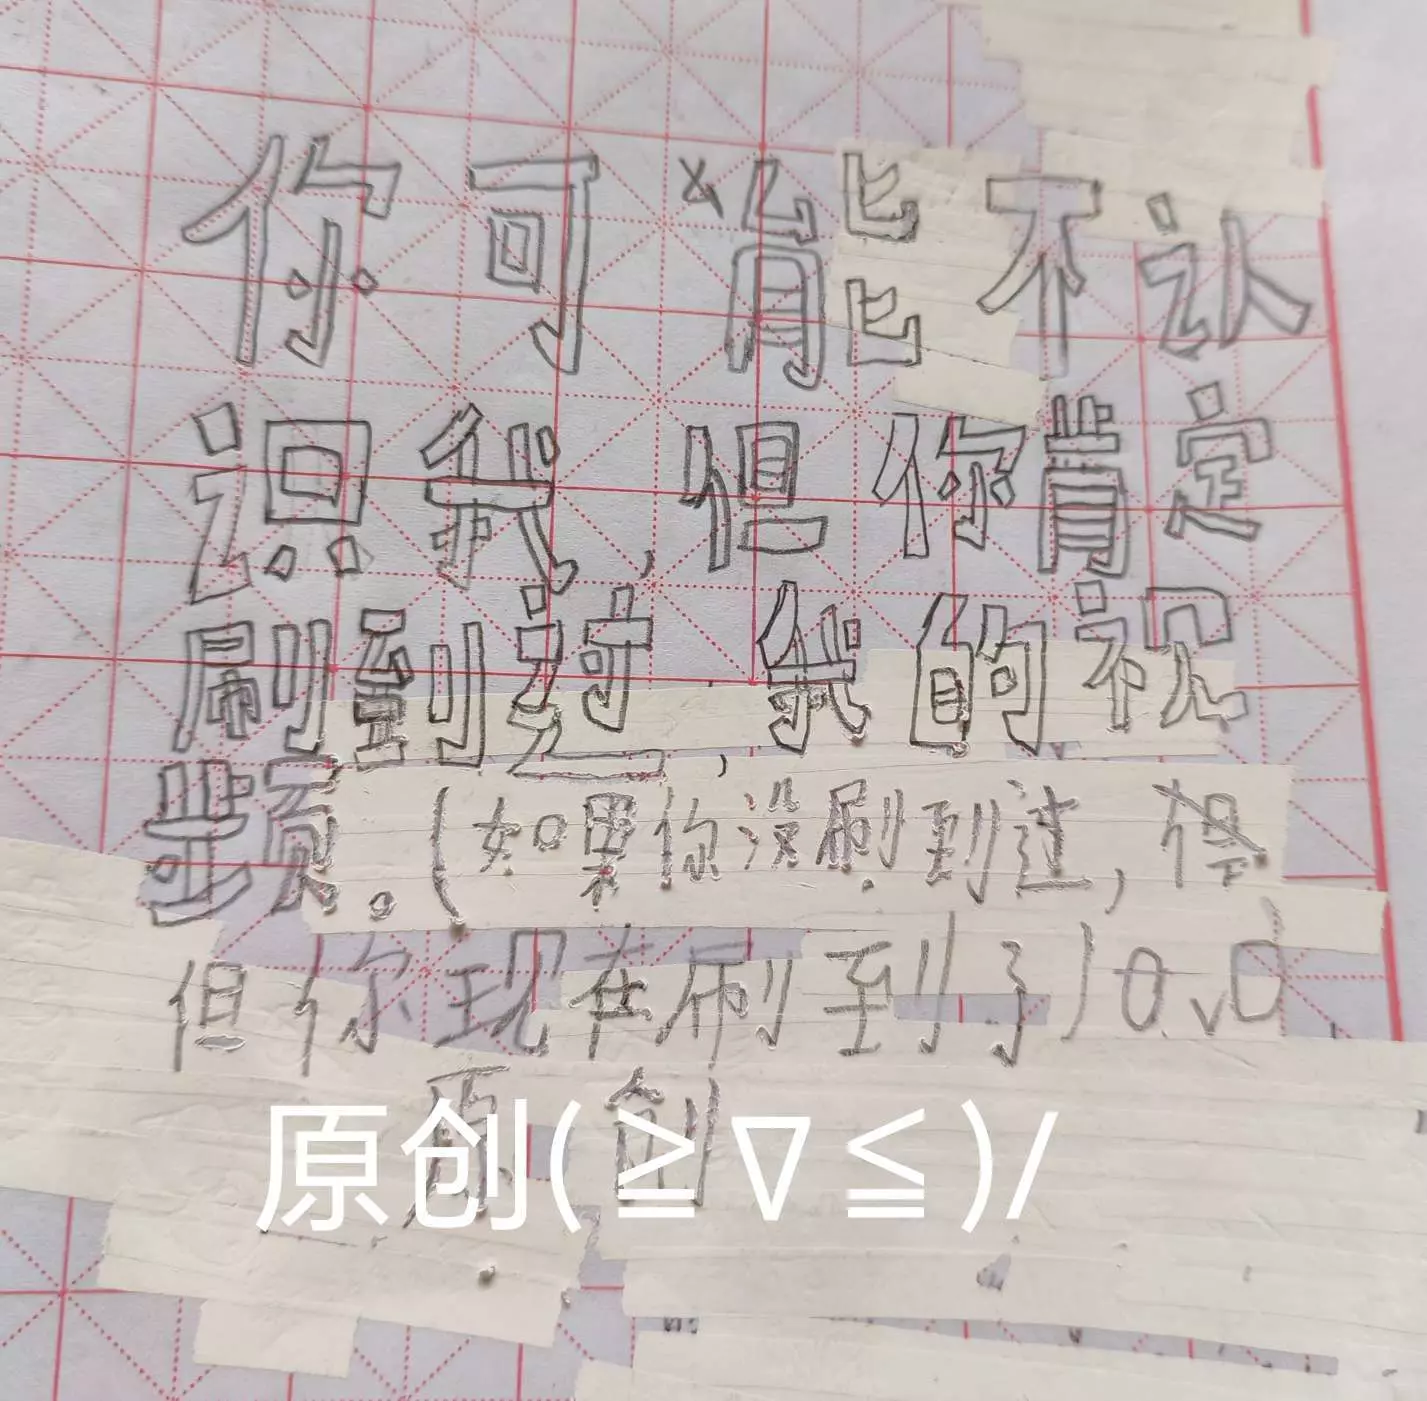 你可能不认
识我,但你肯定
刷到过,我的视
频。(如果你没刷到过,
但你现在刷到了)0.0
原创
原创(≧∇≦)/